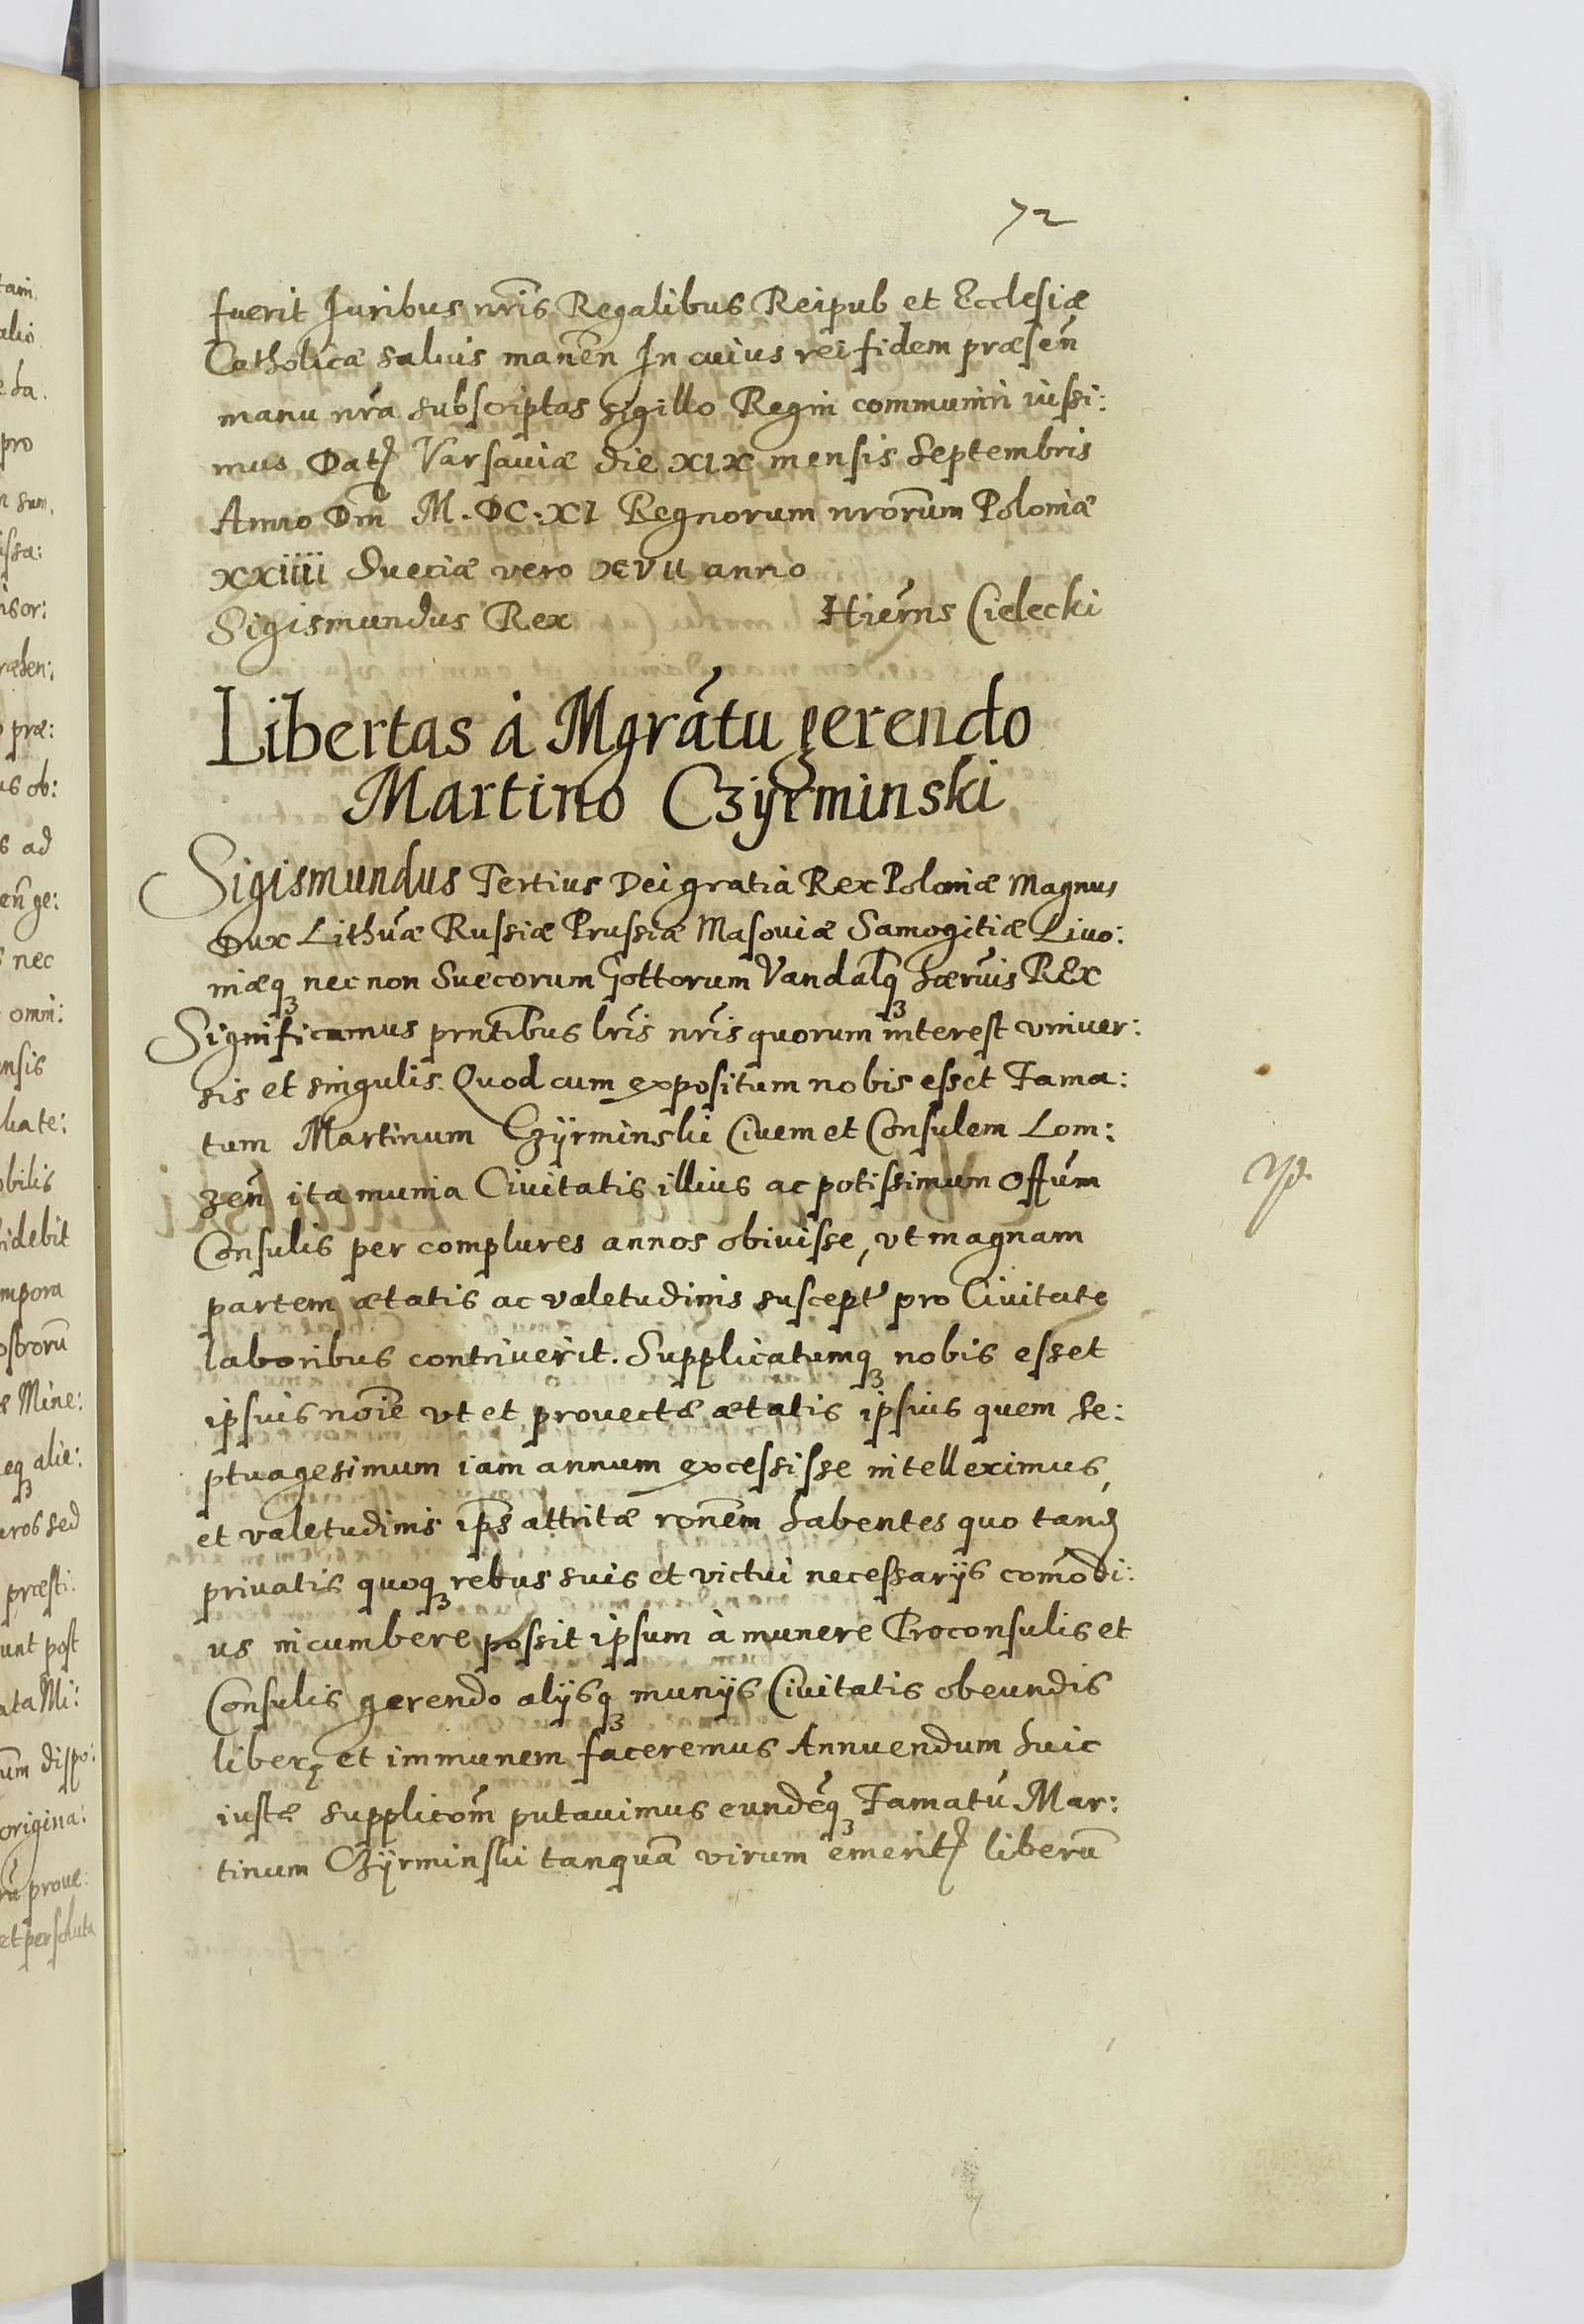 72
fuerit Juribus nr̃is Regalibus Reipub et Ecclesiæ
Catholicæ saluis maneñ In cuius rei fidem præseñ
manu nr̃a subscriptas sigillo Regni communiri iussi:
mus Dat Varsauiæ die XIX mensis Septembris
Anno Dñi M.DC.XI Regnorum nrõrum Poloniæ
XXIIII Sueciæ vero XVII anno
Sigismundus Rex Hierñs Cielecki
Libertas à Mgrãtu gerendo
Martino Czÿrminski
Sigismundus Tertius Dei gratia Rex Poloniæ Magnus
Dux Lithũæ Russiæ Prussiæ Masouiæ Samogitiæ Liuo:
niæq nec non Suecorum Gottorum Vandalq hæruis REx
Significamus prntibus lr̃is nr̃is quorum interest vniuer:
sis et singulis. Quod cum expositum nobis esset Fama:
tum Martinum Czÿrminski Ciuem et Consulem Lom:
zeñ ita munia Ciuitatis illius ac potissimum Offũm
Consulis per complures annos obiuisse, vt magnam
partem ætatis ac valetudinis suscept pro Ciuitate
laboribus contriuerit. Supplicatumq nobis esset
ipsuis nõie vt et prouectæ ætatis ipsius quem se:
ptuagesimum iam annum excessisse intelleximus,
et valetudinis ip̃s attritæ rõnem habentes quo tand
priuatis quoq rebus suis et victui necessarijs com̃odi:
us incumbere possit ipsum à munere Proconsulis et
Consulis gerendo alijsq munijs Ciuitatis obeundis
liberȩ et immunem faceremus Annuendum huic
iustæ supplicom̃ putauimus eundẽq Famatũ Mar:
tinum Czÿrminski tanquã virum emerit liberũ